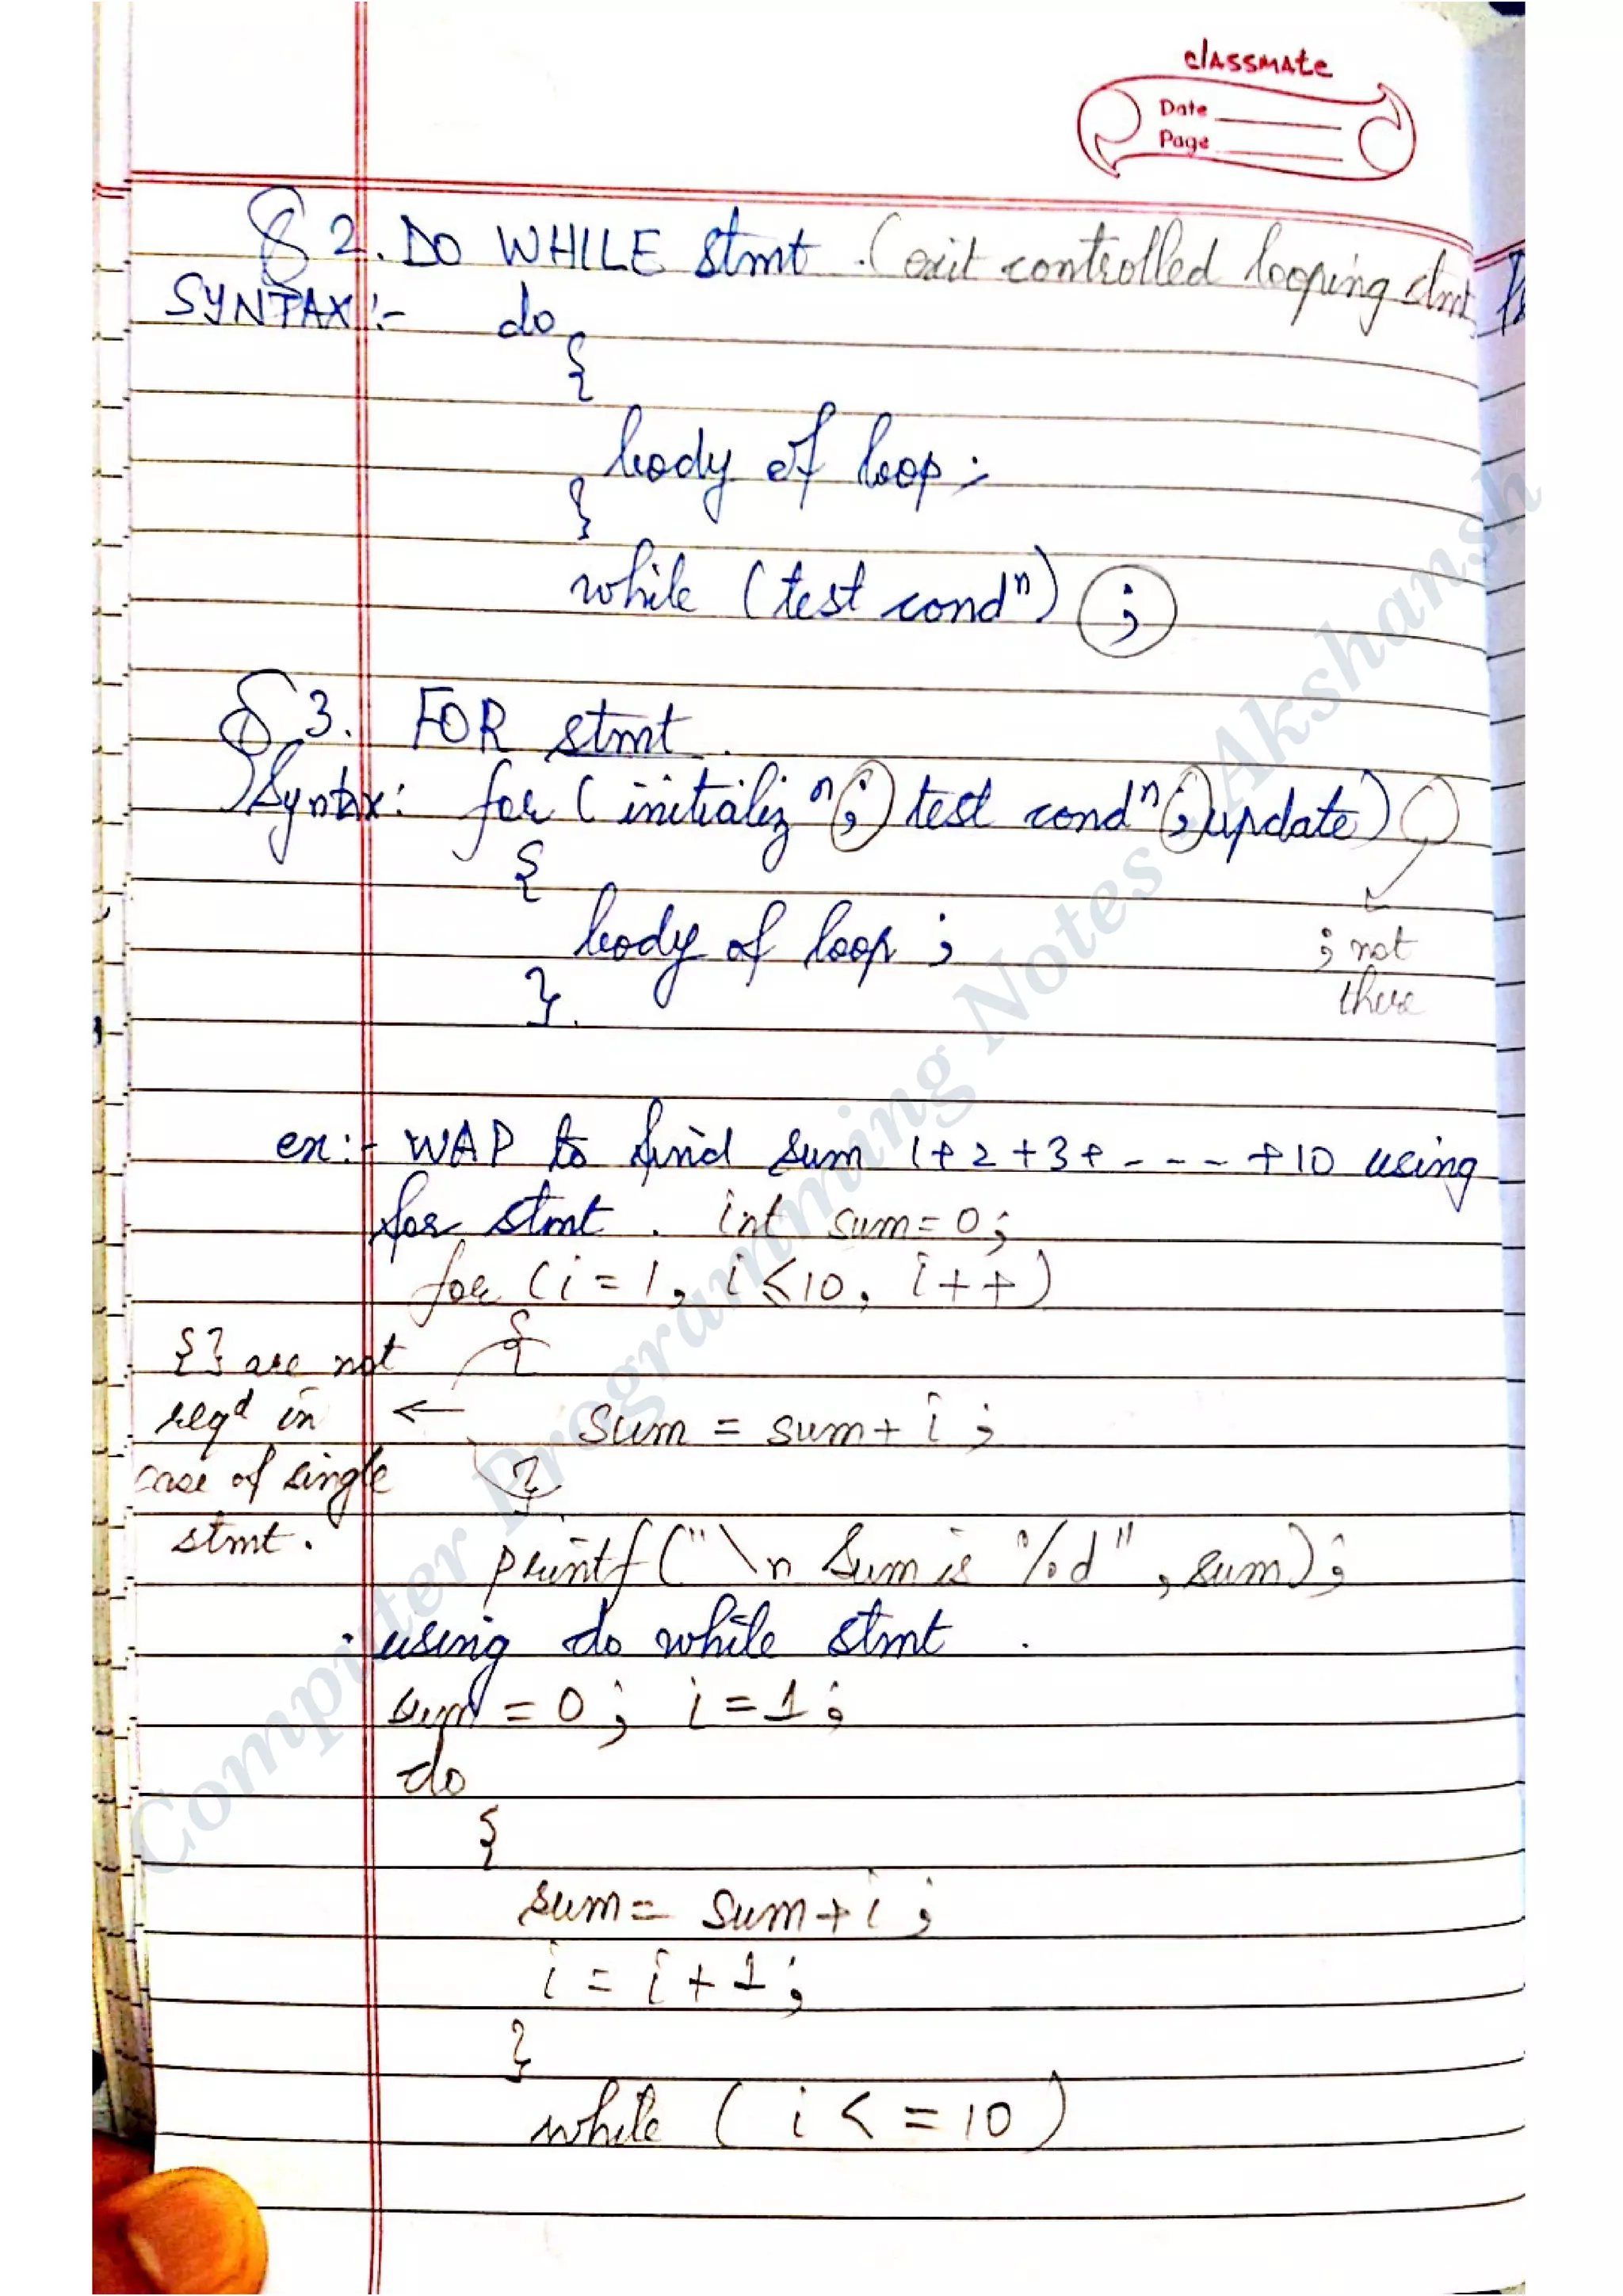 classmate
Date
Page
§ 2. DO WHILE stmt. (exit controlled looping stmt
SYNTAX:- do
{
body of loop;
}
while (test condⁿ) ;
§ 3. FOR stmt.
Syntax: for (initializⁿ ; test condⁿ ; update)
{
; not
there
body of loop ;
}.
ex:- WAP to find sum 1+2+3+----+10 using
for stmt. int sum=0;
for (i=1, i<10, i++)
{
{} are not
reqᵈ in
case of single
stmt.
sum = sum+i;
}
printf("\n Sum is %d", sum);
. using do while stmt.
sum = 0; i=1;
do
{
sum= sum+i;
i = i+1;
}
while ( i <= 10 )
Computer Programming Notes - Akshansh